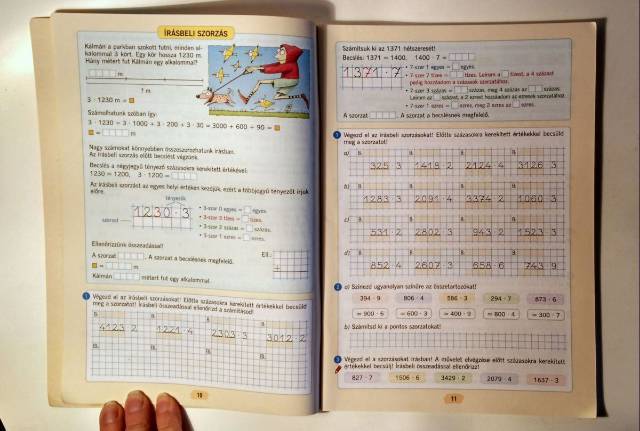 ÍRÁSBELI SZORZÁS
Kálmán a parkban szokott futni, minden al-
kalommal 3 kört. Egy kör hossza 1230 m.
Hány métert fut Kálmán egy alkalommal?
m
? m
3 · 1230 m =
Számolhatunk szóban így:
3 · 1230 = 3 · 1000 + 3 · 200 + 3 · 30 = 3000 + 600 + 90 =
= m
Nagy számokat könnyebben összeszorozhatunk írásban.
Az írásbeli szorzás előtt becslést végzünk.
Becslés a négyjegyű tényező százasokra kerekített értékével:
1230 ≈ 1200, 3 · 1200 =
Az írásbeli szorzást az egyes helyi értéken kezdjük, ezért a többjegyű tényezőt írjuk
előre.
tényezők
1230 · 3
szorzat
• 3-szor 0 egyes = egyes.
• 3-szor 3 tízes = tízes.
• 3-szor 2 százas = százas.
• 3-szor 1 ezres = ezres.
Ellenőrizzünk összeadással!
Ell.:
A szorzat . A szorzat a becslésnek megfelelő.
= m
Kálmán métert fut egy alkalommal.
1 Végezd el az írásbeli szorzásokat! Előtte százasokra kerekített értékekkel becsüld
meg a szorzatot! Írásbeli összeadással ellenőrizd a számításod!
B. B. B. B.
4123 · 2 1221 · 4 2303 · 3 3012 · 2
B. B. B. B.
10
Számítsuk ki az 1371 hétszeresét!
Becslés: 1371 ≈ 1400, 1400 · 7 =
1371 · 7
• 7-szer 1 egyes = egyes.
• 7-szer 7 tízes = tízes. Leírom a tízest, a 4 százast
pedig hozzáadom a százasok szorzatához.
• 7-szer 3 százas = százas, meg 4 százas az százas.
Leírom az százast, a 2 ezrest hozzáadom az ezresek szorzatához.
• 7-szer 1 ezres = ezres, meg 2 ezres az ezres.
A szorzat . A szorzat a becslésnek megfelelő.
1 Végezd el az írásbeli szorzásokat! Előtte százasokra kerekített értékekkel becsüld
meg a szorzatot!
a) B. B. B. B.
325 · 3 1418 · 2 2124 · 4 3126 · 3
b) B. B. B. B.
1283 · 3 2091 · 4 3374 · 2 1060 · 3
c) B. B. B. B.
531 · 2 2802 · 3 943 · 2 1523 · 3
d) B. B. B. B.
852 · 4 2607 · 3 658 · 6 743 · 9
2 a) Színezd ugyanolyan színűre az összetartozókat!
394 · 9 806 · 4 586 · 3 294 · 7 873 · 6
≈ 900 · 6 ≈ 600 · 3 ≈ 400 · 9 ≈ 800 · 4 ≈ 300 · 7
b) Számítsd ki a pontos szorzatokat!
3 Végezd el a szorzásokat írásban! A művelet elvégzése előtt százasokra kerekített
értékekkel becsülj! Írásbeli összeadással ellenőrizz!
827 · 7 1506 · 6 3429 · 2 2079 · 4 1637 · 3
11